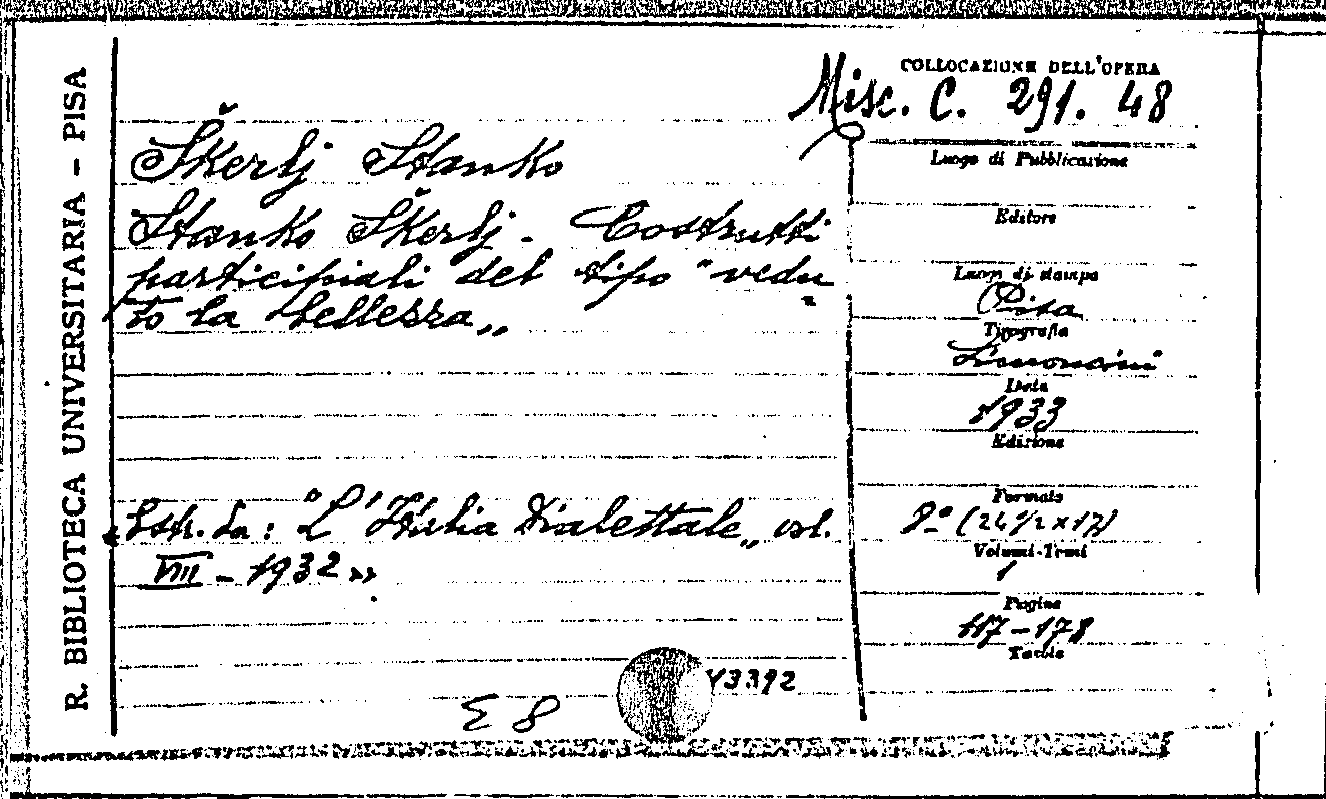 R. BIBLIOTECA UNIVERSITARIA - PISA
COLLOCAZIONE DELL'OPERA
Misc. C. 291. 48
Škerlj Stanko
Stanko Škerlj - Costrutti
participiali del tipo "vedu-
to la bellezza„
«Estr. da: "L'Italia Dialettale„ vol.
VIII - 1932»
Luogo di Pubblicazione
Editore
Luogo di stampa
Pisa
Tipografia
Simoncini
Data
1933
Edizione
Formato
8º (24½ x 17)
Volumi-Tomi
1
Pagine
117-178
Tavole
3392
E 8